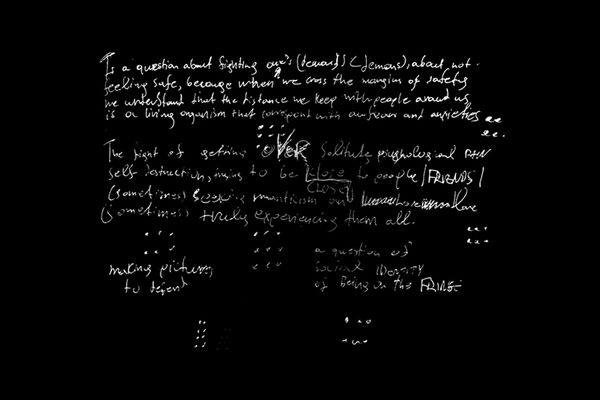 Is a question about fighting one's (demons) (demons), about not
feeling safe, because when we cross the margins of safety
we understand that the distance we keep with people around us,
is a living organism that correspond with our fear and anxieties
The fight of getting OVER solitude psychological PAIN
self destruction, trying to be close to people /FRIENDS/
CLOSE
(sometimes) seeking romanticism or love
(sometimes) truly experiencing them all.
making pictures
to defend
a question of
social IDENTITY
of Being on the FRINGE